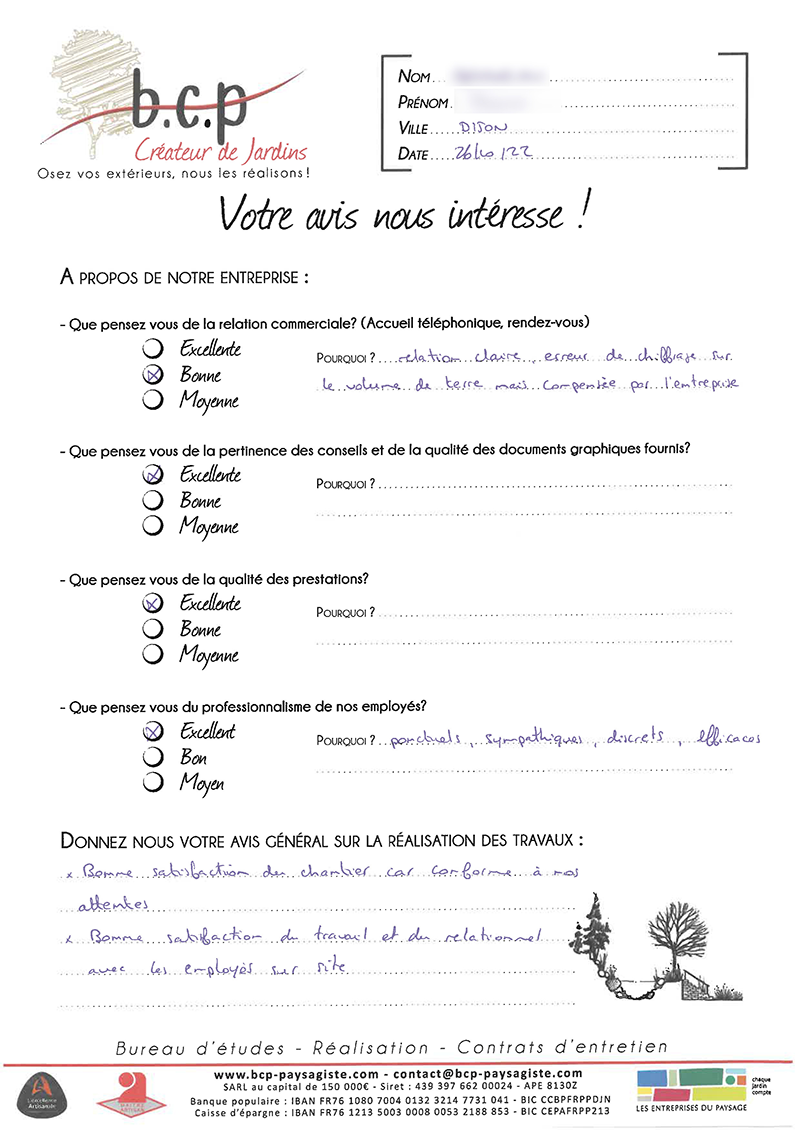 b.c.p
Créateur de Jardins
Osez vos extérieurs, nous les réalisons!
NOM
PRÉNOM
VILLE DIJON
DATE 26/10/22
Votre avis nous intéresse !
A PROPOS DE NOTRE ENTREPRISE :
- Que pensez vous de la relation commerciale? (Accueil téléphonique, rendez-vous)
Excellente
POURQUOI ? relation claire, erreur de chiffrage sur
Bonne
le volume de terre mais compensée par l'entreprise
Moyenne
- Que pensez vous de la pertinence des conseils et de la qualité des documents graphiques fournis?
Excellente
POURQUOI ?
Bonne
Moyenne
- Que pensez vous de la qualité des prestations?
Excellente
POURQUOI ?
Bonne
Moyenne
- Que pensez vous du professionnalisme de nos employés?
Excellent
POURQUOI ? ponctuels, sympathiques, discrets, efficaces
Bon
Moyen
DONNEZ NOUS VOTRE AVIS GÉNÉRAL SUR LA RÉALISATION DES TRAVAUX :
x Bonne satisfaction du chantier car conforme à nos
attentes
x Bonne satisfaction du travail et du relationnel
avec les employés sur site
Bureau d'études - Réalisation - Contrats d'entretien
www.bcp-paysagiste.com - contact@bcp-paysagiste.com
SARL au capital de 150 000€ - Siret : 439 397 662 00024 - APE 8130Z
Banque populaire : IBAN FR76 1080 7004 0132 3214 7731 041 - BIC CCBPFRPPDJN
Caisse d'épargne : IBAN FR76 1213 5003 0008 0053 2188 853 - BIC CEPAFRPP213
Artisanale
MAITRE
ARTISAN
chaque
jardin
compte
LES ENTREPRISES DU PAYSAGE